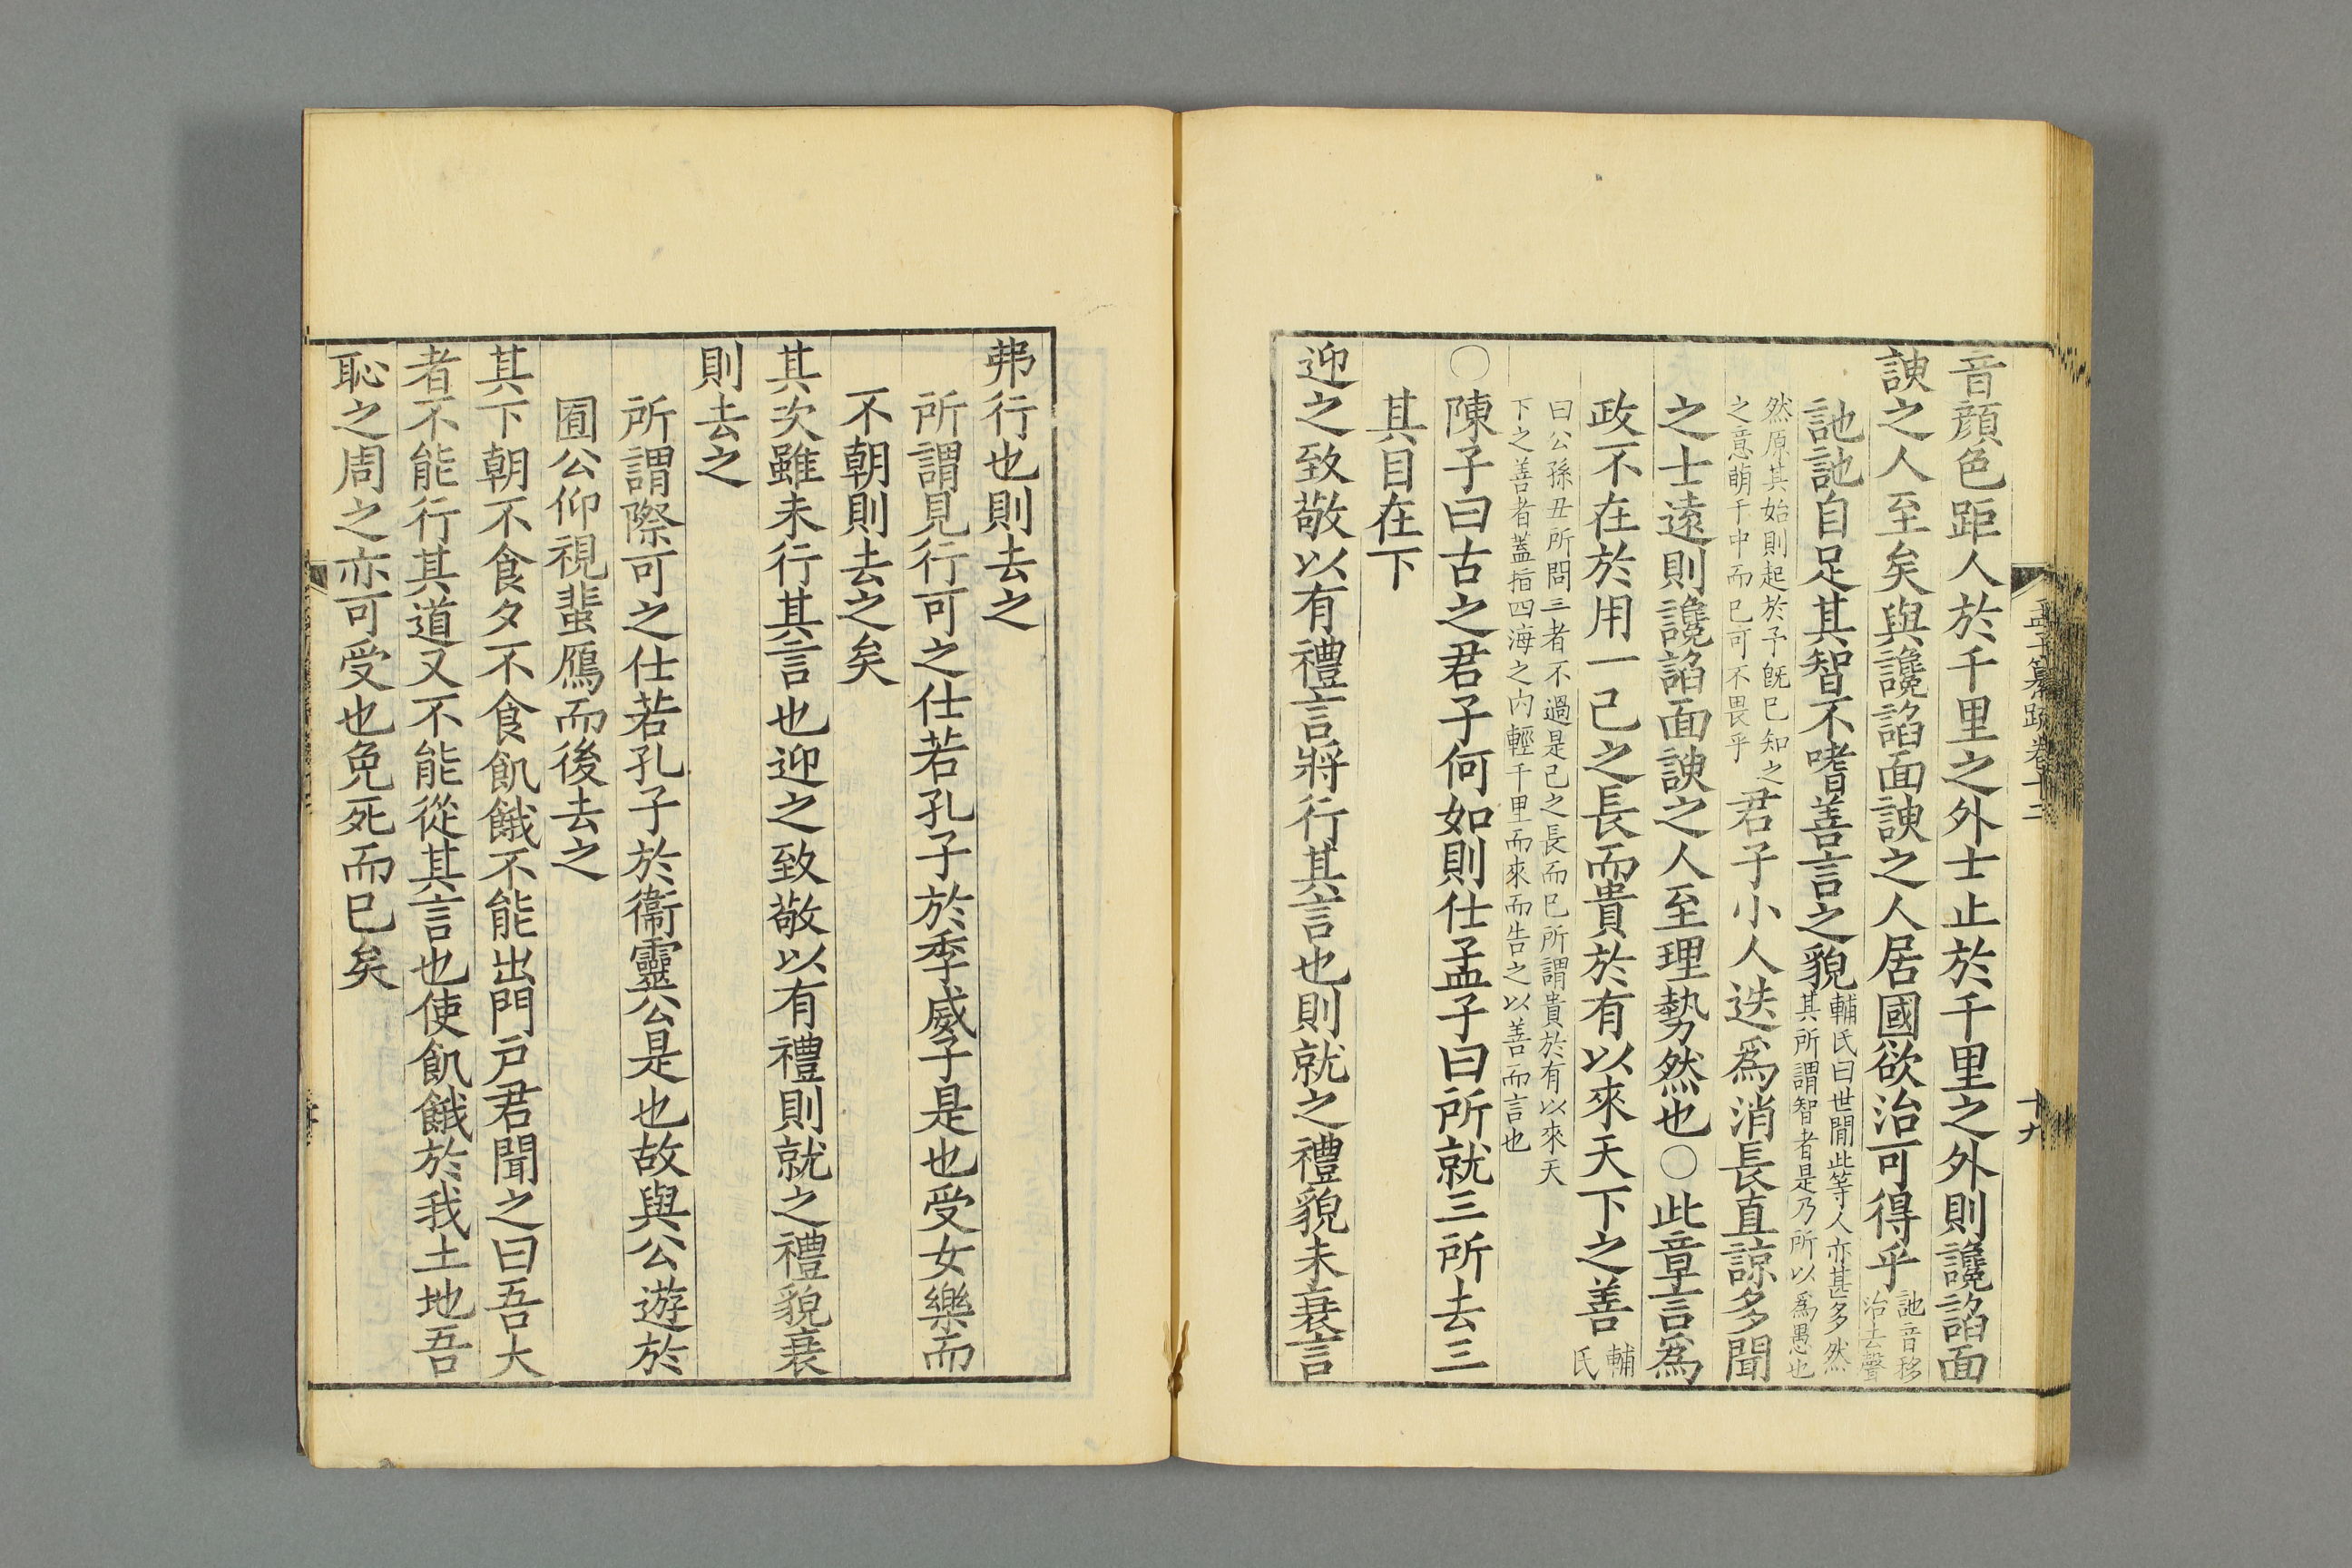 孟子纂疏卷十二
十九
音顔色距人於千里之外士止於千里之外則讒諂面
諛之人至矣與讒諂面諛之人居國欲治可得乎訑音移
治去聲
訑訑自足其智不嗜善言之貌輔氏曰世間此等人亦甚多然
其所謂智者是乃所以爲愚也
然原其始則起於予旣已知之
之意萌于中而已可不畏乎君子小人迭爲消長直諒多聞
之士遠則讒諂面諛之人至理勢然也〇此章言爲
政不在於用一己之長而貴於有以來天下之善輔
氏
曰公孫丑所問三者不過是己之長而已所謂貴於有以來天
下之善者蓋指四海之内輕千里而來而告之以善而言也
〇陳子曰古之君子何如則仕孟子曰所就三所去三
其目在下
迎之致敬以有禮言將行其言也則就之禮貌未衰言
弗行也則去之
所謂見行可之仕若孔子於季威子是也受女樂而
不朝則去之矣
其次雖未行其言也迎之致敬以有禮則就之禮貌衰
則去之
所謂際可之仕若孔子於衞靈公是也故與公遊於
囿公仰視蜚鴈而後去之
其下朝不食夕不食飢餓不能出門戸君聞之曰吾大
者不能行其道又不能從其言也使飢餓於我土地吾
恥之周之亦可受也免死而已矣